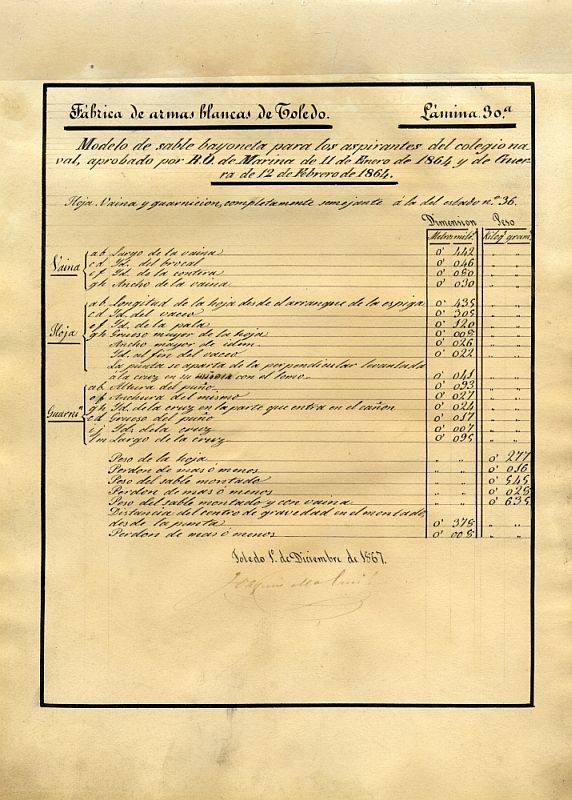 Fábrica de armas blancas de Toledo. Lámina 30.ª
Modelo de sable bayoneta para los aspirantes del colegio na
val, aprobado por R.O. de Marina de 11 de Enero de 1864 y de Guer
ra de 12 de Febrero de 1864.
Hoja. Vaina y guarnicion, completamente semejante á la del estado n.º 36.
Dimension Peso
Metros milí. Kilog.ˢ gram.ˢ
Vaina
ab Largo de la vaina 0' 442 " "
cd Id. del brocal 0' 046 " "
ef Id. de la contera 0' 050 " "
gh Ancho de la vaina 0' 030 " "
Hoja
ab Longitud de la hoja desde el arranque de la espiga 0' 435 " "
cd Id. del vaceo 0' 305 " "
ef Id. de la pala 0' 120 " "
gh Grueso mayor de la hoja 0' 008 " "
Ancho mayor de idem. 0' 026 " "
Id. al fin del vaceo 0' 022 " "
La punta se aparta de la perpendicular levantada
á la cruz en su con el lomo. 0' 041 " "
Guarni.ⁿ
ab Altura del puño 0' 093 " "
ef Anchura del mismo 0' 027 " "
gh Id. de la cruz en la parte que entra en el cañon 0' 024 " "
cd Grueso del puño 0' 017 " "
ij Id. de la cruz 0' 007 " "
lm Largo de la cruz 0' 095 " "
Peso de la hoja " " 0' 277
Perdon de mas ó menos " " 0' 016
Peso del sable montado " " 0' 545
Perdon de mas ó menos " " 0' 028
Peso del sable montado y con vaina " " 0' 635
Distancia del centro de gravedad en el montado,
desde la punta 0' 375 " "
Perdon de mas ó menos 0' 008 " "
Toledo 1.º de Diciembre de 1867.
Joaquin